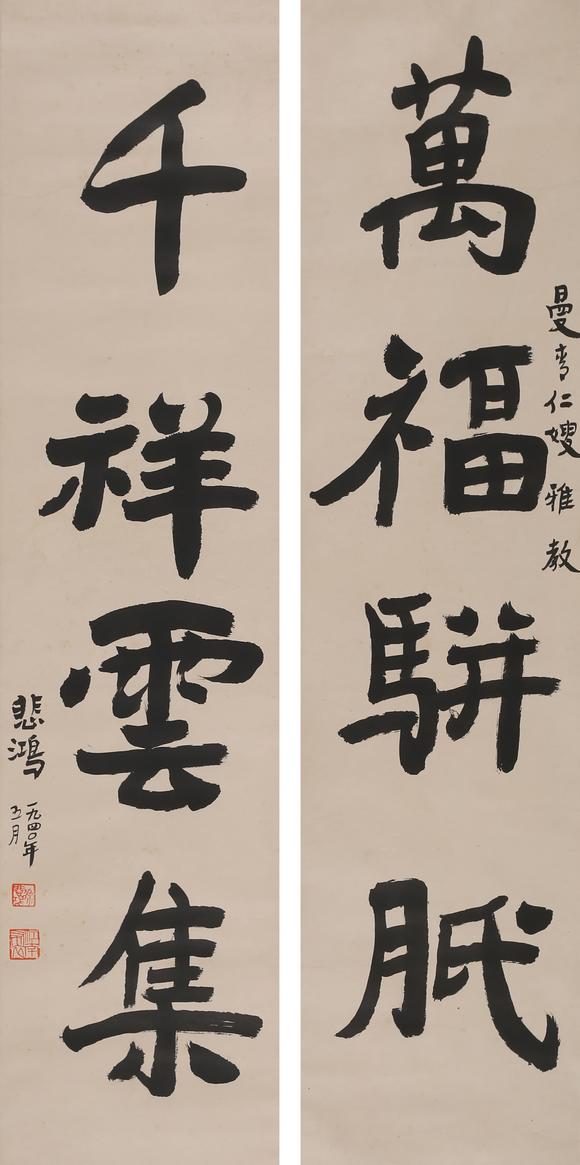 曼青仁嫂雅教
萬福駢胝
千祥雲集
悲鴻
一九四〇年
五月